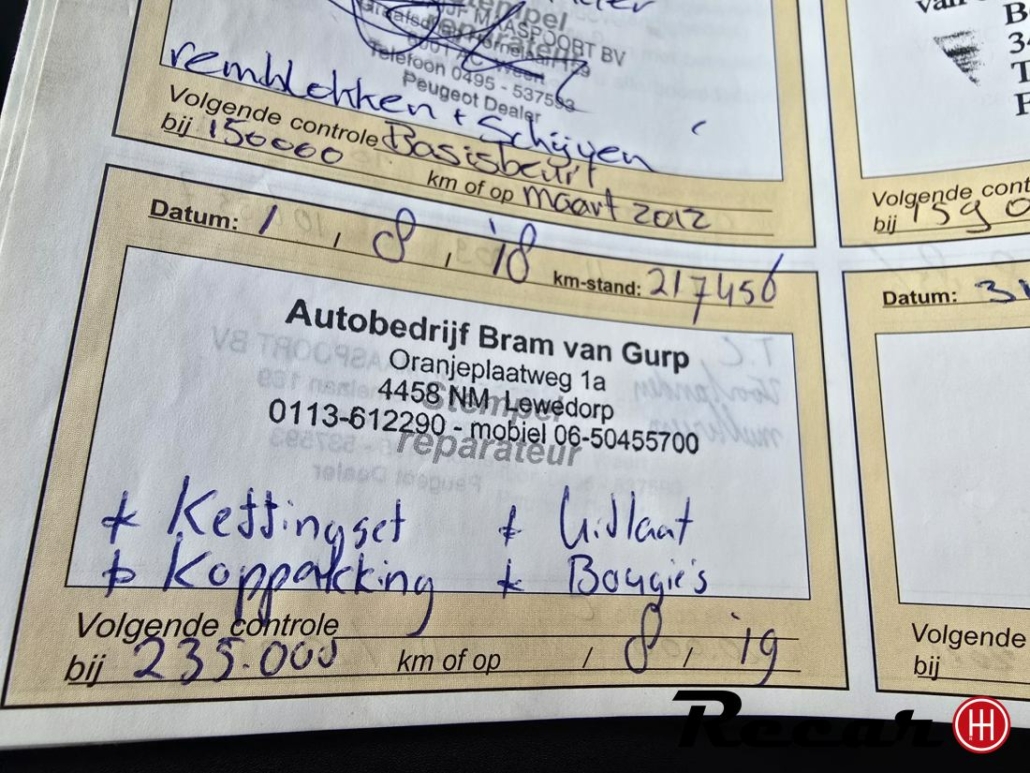 Stempel
reparateur
MAASPOORT BV
Telefoon 0495 - 537593
Peugeot Dealer
remblokken + Schijven
Volgende controle Basisbeurt
bij 150000 km of op maart 2012
Datum: 1 , 8 , '18 km-stand: 217456
Autobedrijf Bram van Gurp
Oranjeplaatweg 1a
4458 NM Lewedorp
Stempel
0113-612290 - mobiel 06-50455700
reparateur
* Kettingset * Uitlaat
* Koppakking * Bougie's
Volgende controle
bij 235.000 km of op / 8 , '19
van
Volgende cont
bij 159
Datum: 31
Volgende
bij
Recar